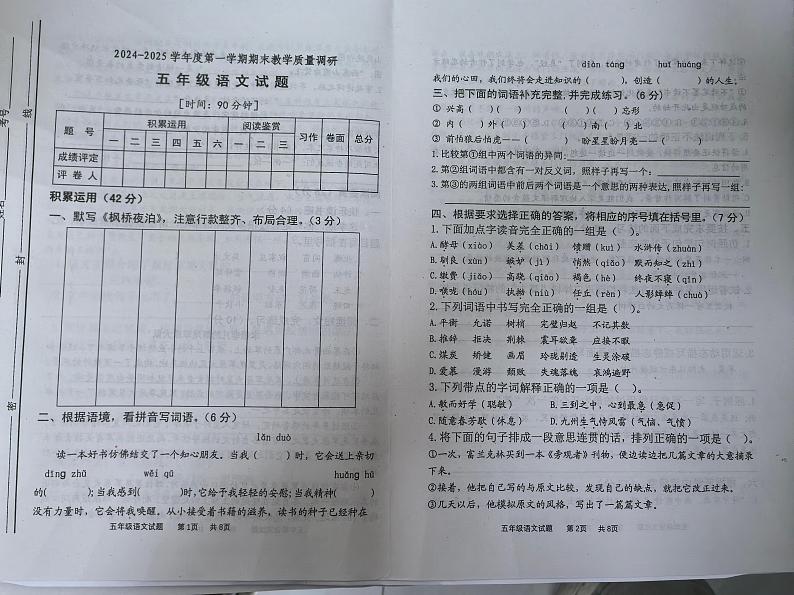 考号
线
姓名
封
密
2024-2025 学年度第一学期期末教学质量调研
五年级语文试题
[时间：90分钟]
题 号 积累运用 阅读鉴赏 习作 卷面 总分
一 二 三 四 五 六 一 二 三
成绩评定
评 卷 人
积累运用（42分）
一、默写《枫桥夜泊》，注意行款整齐、布局合理。（3分）
二、根据语境，看拼音写词语。（6分）
lǎn duò
读一本好书仿佛结交了一个知心朋友。当我（ ）时，它会送上亲切
dīng zhǔ wěi qū huǎng hū
的（ ）；当我感到（ ）时，它给予我轻轻的安慰；当我精神（ ）
没有力量时，它会将我唤醒。从小接受着书籍的滋养，读书的种子已经种在
五年级语文试题 第1页 共8页
diàn táng huī huáng
我们的心田，我们终将会走进知识的（ ），创造（ ）的人生。
三、把下面的词语补充完整，并完成练习。（6分）
① 兴高（ ）（ ） （ ）（ ）忘形
② 内（ ）外（ ） （ ）南（ ）北
③ 前怕狼后怕虎——（ ） 盼星星盼月亮——（ ）
1.比较第①组中两个词语的异同：
2.第②组词语中都含有一对反义词，照样子再写一个：
3.第③的两组词语中前后两个词语是一个意思的两种表达，照样子再写一组：
四、根据要求选择正确的答案，将相应的序号填在括号里。（7分）
1.下面加点字读音完全正确的一组是（ ）。
A.酵母（xiào） 美差（chāi） 馈赠（kuì） 水浒传（zhuàn）
B.驯良（xùn） 嫉妒（jì） 悄然（qiǎo） 默而知之（zhì）
C.缴费（jiǎo） 高跷（qiāo） 褐色（hè） 终夜不寝（qǐn）
D.喉咙（hóu） 执拗（niù） 任丘（rèn） 人影绰绰（chuò）
2.下列词语中书写完全正确的一组是（ ）。
A.平衡 允诺 树梢 完璧归赵 不记其数
B.推辞 拒决 荆棘 震耳欲聋 应接不暇
C.煤炭 矫健 画眉 玲珑剔透 生灵涂碳
D.爱慕 漫游 颓败 失魂落魄 哀鸿遍野
3.下列带点的字词解释正确的一项是（ ）。
A.敏而好学（聪敏） B.三到之中，心到最急（急促）
C.随意春芳歇（休息） D.九州生气恃风雷（气恼、气愤）
4.将下面的句子排成一段意思连贯的话，排列正确的一项是（ ）。
①一次，富兰克林买到一本《旁观者》刊物，便边读边把几篇文章的大意摘录
下来。
②接着，他把自己写的与原文比较，发现自己的缺点，就把它改正过来。
③几天以后，他模拟原文的风格，写出了一篇篇文章。
五年级语文试题 第2页 共8页